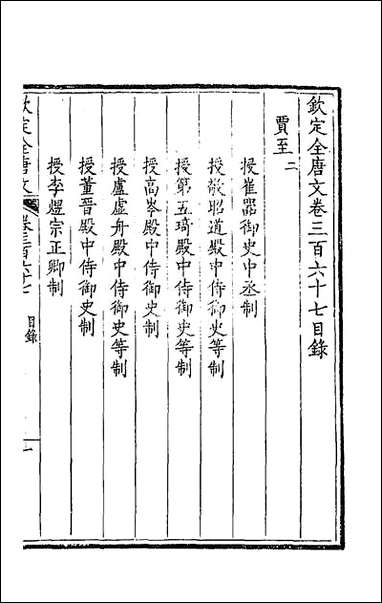 欽定全唐文卷三百六十七目錄
賈至二
授崔器御史中丞制
授敬昭道殿中侍御史制
授第五琦殿中侍御史等制
授高岑殿中侍御史制
授盧虛舟殿中侍御史等制
授董晉殿中侍御史制
授李熤宗正卿制
欽定全唐文 卷三百六十七 目錄 一